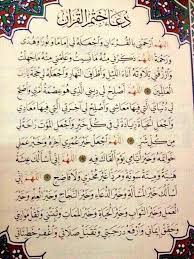 دُعَاءُ خَتْمِ الْقُرْآنِ
اللَّهُمَّ ارْحَمْنِي بِالْقُرْءَانِ وَاجْعَلْهُ لِي إِمَامًا وَنُورًا وَهُدًى
وَرَحْمَةً اللَّهُمَّ ذَكِّرْنِي مِنْهُ مَا نَسِيتُ وَعَلِّمْنِي مِنْهُ مَا جَهِلْتُ
وَارْزُقْنِي تِلَاوَتَهُ آنَاءَ اللَّيْلِ وَأَطْرَافَ النَّهَارِ وَاجْعَلْهُ لِي حُجَّةً يَا رَبَّ
الْعَالَمِينَ اللَّهُمَّ أَصْلِحْ لِي دِينِي الَّذِي هُوَ عِصْمَةُ أَمْرِي وَأَصْلِحْ لِي
دُنْيَايَ الَّتِي فِيهَا مَعَاشِي وَأَصْلِحْ لِي آخِرَتِي الَّتِي فِيهَا مَعَادِي
وَاجْعَلِ الْحَيَاةَ زِيَادَةً لِي فِي كُلِّ خَيْرٍ وَاجْعَلِ الْمَوْتَ رَاحَةً لِي
مِنْ كُلِّ شَرٍّ اللَّهُمَّ اجْعَلْ خَيْرَ عُمْرِي آخِرَهُ وَخَيْرَ عَمَلِي
خَوَاتِمَهُ وَخَيْرَ أَيَّامِي يَوْمَ أَلْقَاكَ فِيهِ اللَّهُمَّ إِنِّي أَسْأَلُكَ عِيشَةً
هَنِيَّةً وَمِيتَةً سَوِيَّةً وَمَرَدًّا غَيْرَ مُخْزٍ وَلَا فَاضِحٍ اللَّهُمَّ إِنِّي
أَسْأَلُكَ خَيْرَ الْمَسْأَلَةِ وَخَيْرَ الدُّعَاءِ وَخَيْرَ النَّجَاحِ وَخَيْرَ الْعِلْمِ وَخَيْرَ
الْعَمَلِ وَخَيْرَ الثَّوَابِ وَخَيْرَ الْحَيَاةِ وَخَيْرَ الْمَمَاتِ وَثَبِّتْنِي وَثَقِّلْ مَوَازِينِي
وَحَقِّقْ إِيمَانِي وَارْفَعْ دَرَجَتِي وَتَقَبَّلْ صَلَاتِي وَاغْفِرْ خَطِيئَاتِي